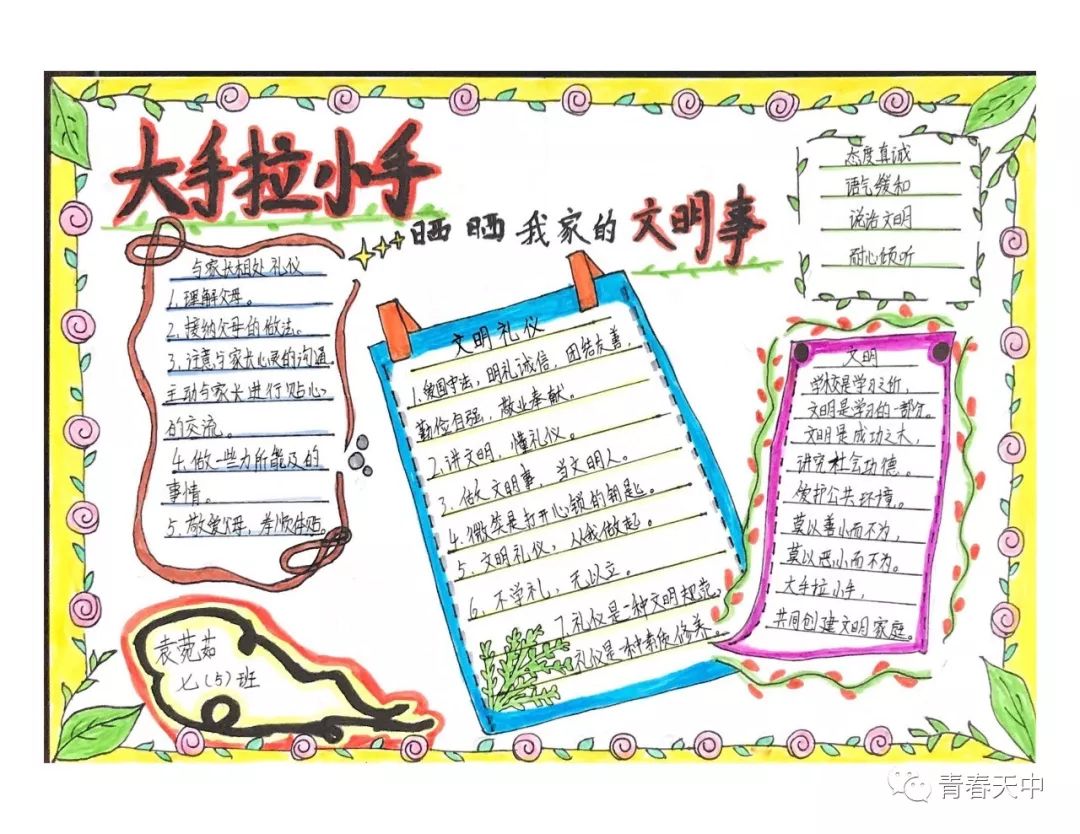 大手拉小手
晒晒我家的文明事
与家长相处礼仪
1.理解父母。
2.接纳父母的做法。
3.注意与家长心灵的沟通。
主动与家长进行贴心
的交流。
4.做一些力所能及的
事情。
5.敬爱父母,孝顺体贴。
袁菀茹
七(5)班
文明礼仪
1.爱国守法,明礼诚信,团结友善,
勤俭自强,敬业奉献。
2.讲文明,懂礼仪。
3.做文明事,当文明人。
4.微笑是打开心锁的钥匙。
5.文明礼仪,从我做起。
6.不学礼,无以立。
7.礼仪是一种文明规范,
礼仪是一种素质修养。
态度真诚
语气缓和
说话文明
耐心倾听
文明
学校是学习之所,
文明是学习的一部分。
文明是成功之本,
讲究社会功德。
维护公共环境。
莫以善小而不为,
莫以恶小而为。
大手拉小手,
共同创建文明家庭。
青春天中